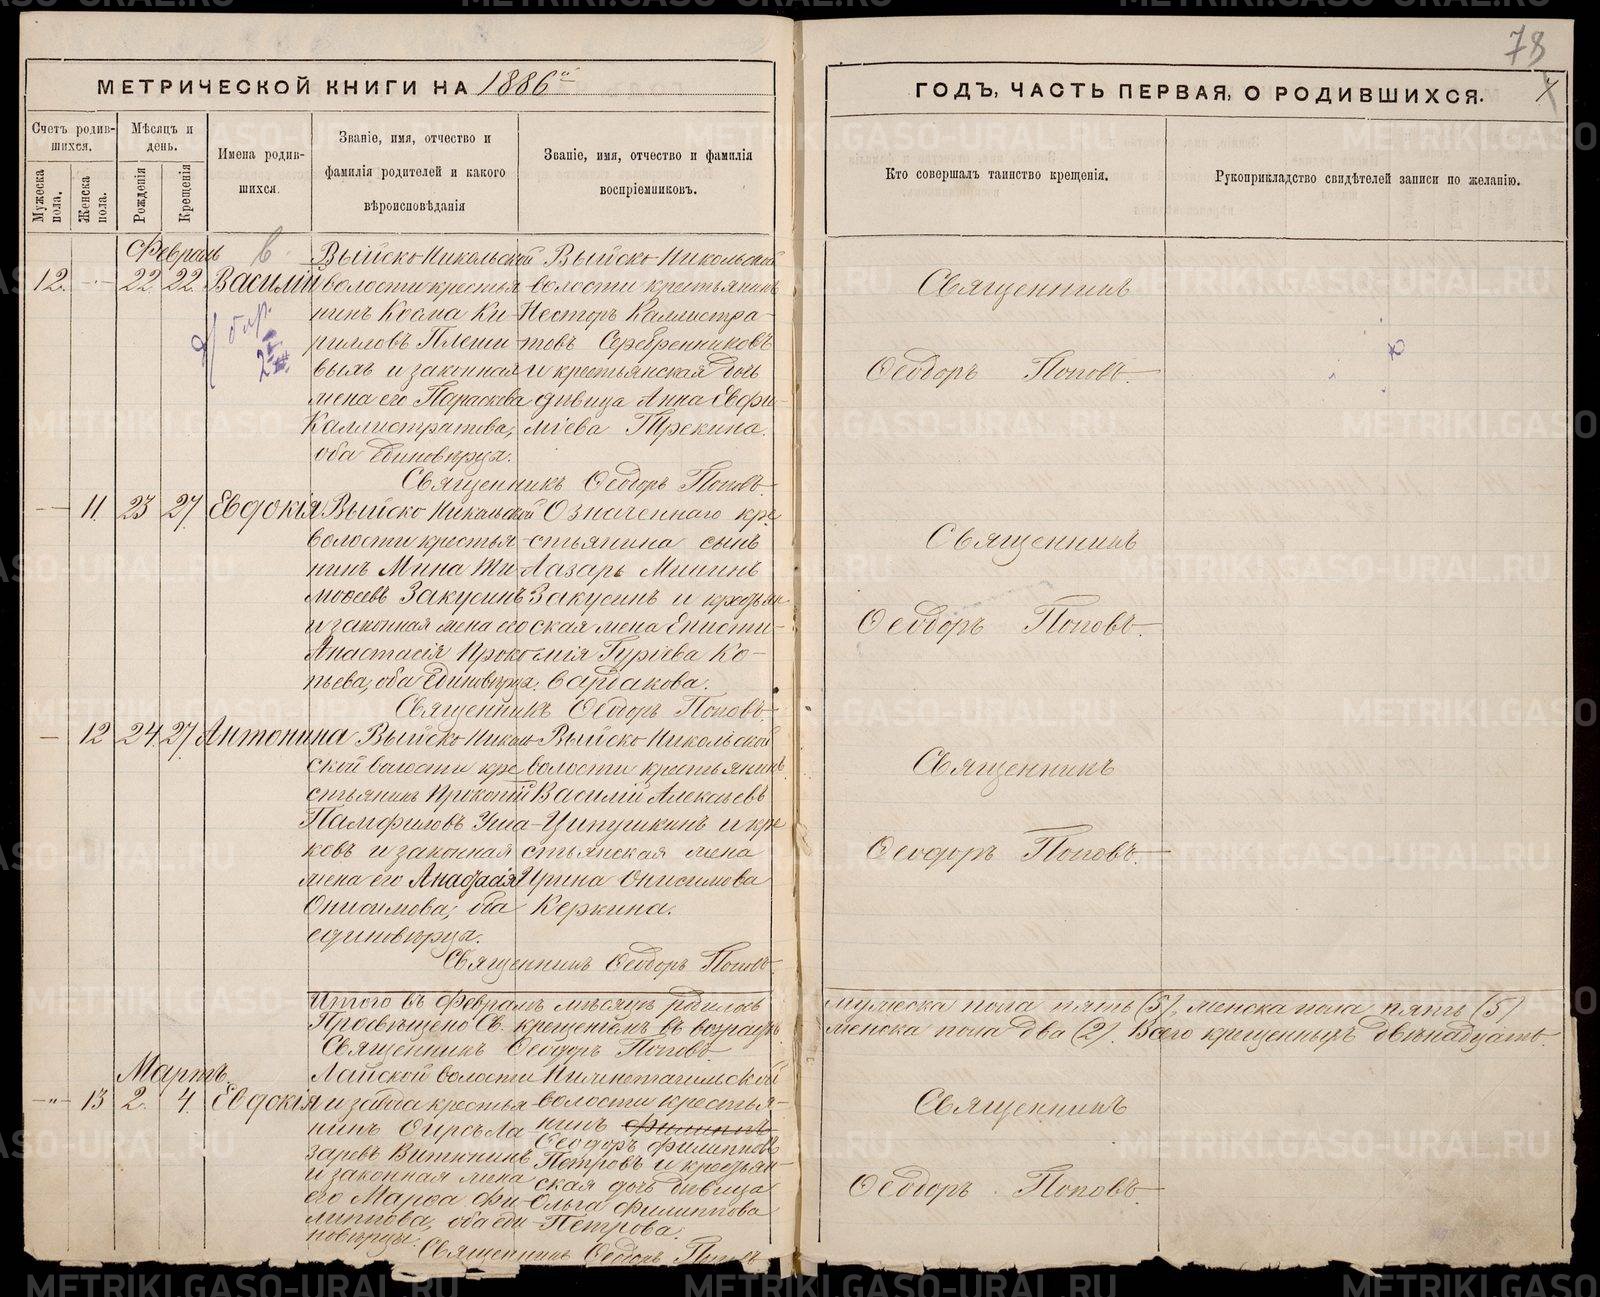 78
МЕТРИЧЕСКОЙ КНИГИ НА 1886й
ГОДЪ, ЧАСТЬ ПЕРВАЯ, О РОДИВШИХСЯ.
Счетъ родив-
шихся.
Мужеска пола.
Женска пола.
Мѣсяцъ и
день.
Рожденія
Крещенія
Имена родив-
шихся.
Званіе, имя, отчество и
фамилія родителей и какого
вѣроисповѣданія
Званіе, имя, отчество и фамилія
воспріемниковъ.
Кто совершалъ таинство крещенія.
Рукоприкладство свидѣтелей записи по желанію.
Февраль
12. 22 22 Василій
Выйско-Никольской
волости крестья-
нинъ Косма Ки-
рилловъ Плеши-
выхъ и законная
жена его Параскева
Каллистратова,
оба единовѣрцы.
Выйско-Никольской
волости крестьянинъ
Несторъ Каллистра-
товъ Серебренниковъ
и крестьянская дочь
дѣвица Анна Евфи-
міева Трекина.
Священникъ Ѳеодоръ Поповъ.
Священникъ
Ѳеодоръ Поповъ.
11. 23 27 Евдокія
Выйско-Никольской
волости крестья-
нинъ Мина Ти-
моѳеевъ Закусинъ
и законная жена его
Анастасія Проко-
пьева, оба единовѣрцы.
Означеннаго кре-
стьянина сынъ
Лазарь Мининъ
Закусинъ и крестьян-
ская жена Еписти-
мія Гуріева Ко-
вардакова.
Священникъ Ѳеодоръ Поповъ.
Священникъ
Ѳеодоръ Поповъ.
12 24 27 Антонина
Выйско-Николь-
ской волости кре-
стьянинъ Прокопій
Памфиловъ Уша-
ковъ и законная
жена его Анафасія
Онисимова, оба
единовѣрцы.
Выйско-Никольской
волости крестьянинъ
Василій Алексѣевъ
Ципушкинъ и кре-
стьянская жена
Ирина Онисимова
Керкина.
Священникъ Ѳеодоръ Поповъ.
Священникъ
Ѳеодоръ Поповъ.
Итого въ Февралѣ мѣсяцѣ родилось мужеска пола пять (5), женска пола пять (5)
Просвѣщено Св. крещеніемъ въ возрастѣ женска пола два (2). Всего крещенныхъ двѣнадцать.
Священникъ Ѳеодоръ Поповъ.
Мартъ
13 2. 4. Евдокія
Лайской волости
и завода крестья-
нинъ Ѳирсъ Ла-
заревъ Витюнинъ
и законная жена
его Марѳа Фи-
липпова, оба еди-
новѣрцы.
Нижнетагильской
волости крестья-
нинъ Филиппъ
Ѳеодоръ Филипповъ
Петровъ и крестьян-
ская дочь дѣвица
Ольга Филиппова
Петрова.
Священникъ Ѳеодоръ Поповъ
Священникъ
Ѳеодоръ Поповъ.
METRIKI.GASO-URAL.RU